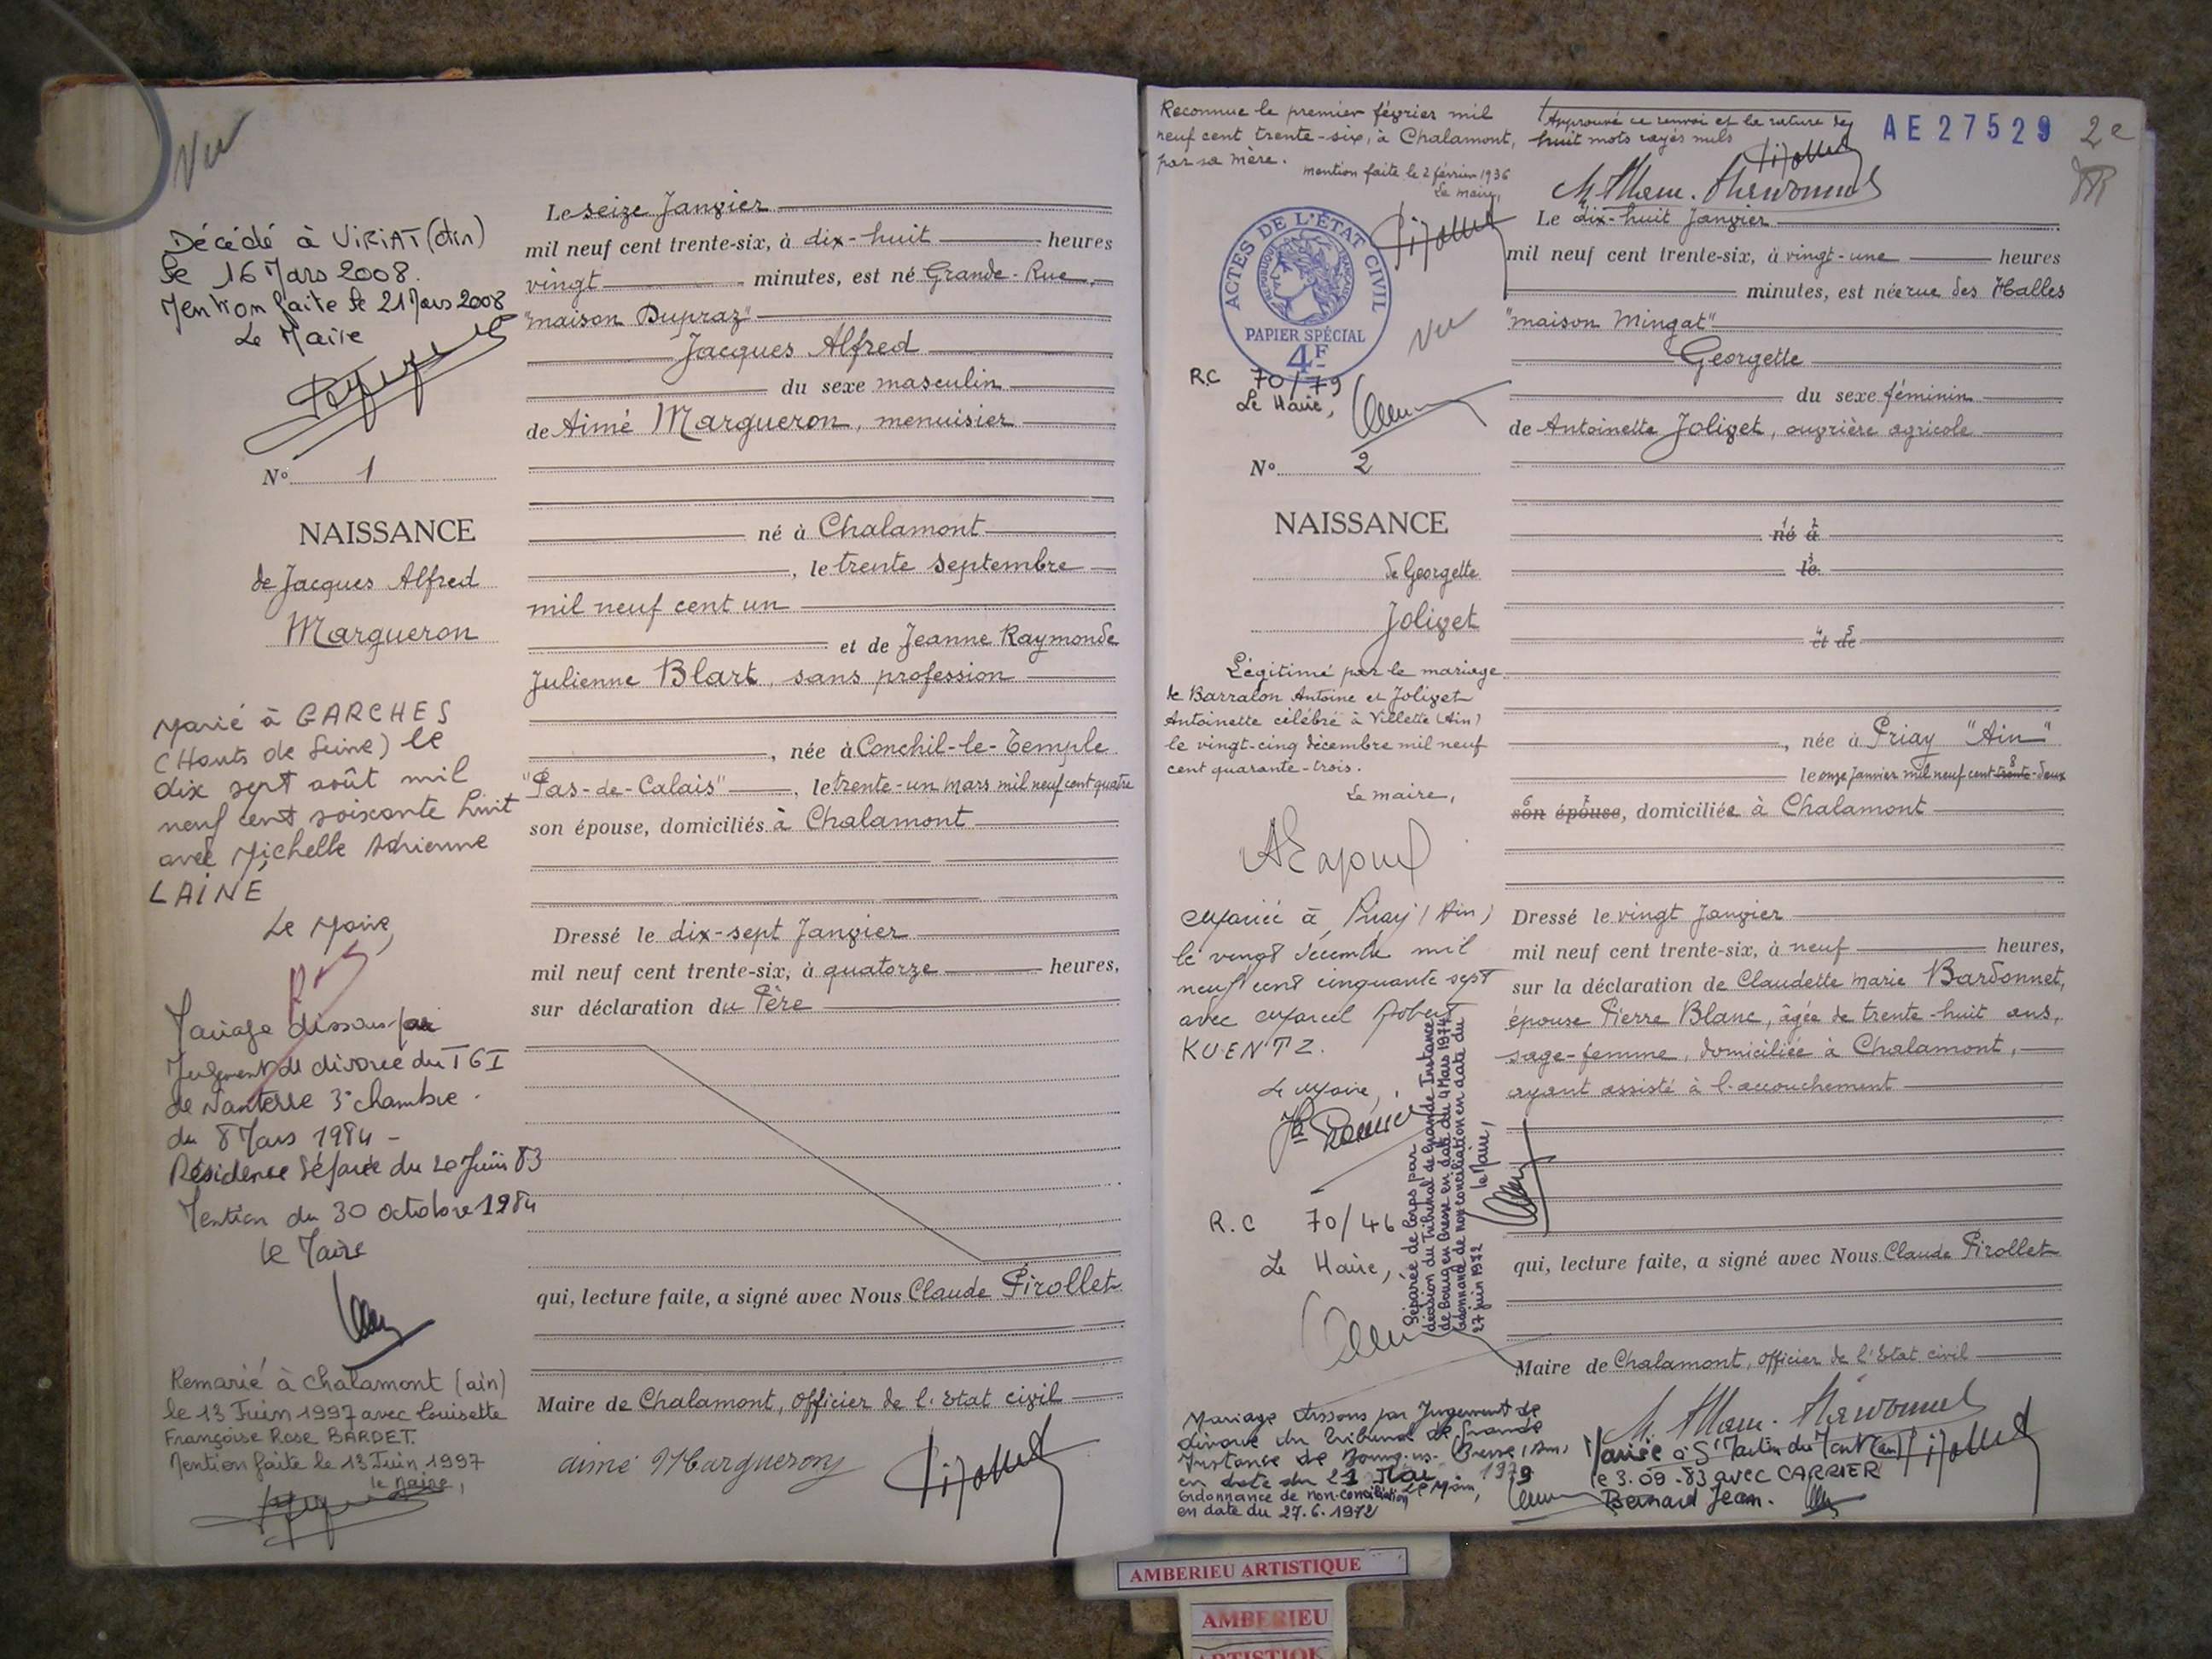 Vu
Décédé à VIRIAT (Ain)
le 16 Mars 2008.
Mention faite le 21 Mars 2008
Le Maire
N° 1
NAISSANCE
de Jacques Alfred
Margueron
Marié à GARCHES
(Hauts de Seine) le
dix sept août mil
neuf cent soixante huit
avec Michelle Adrienne
LAINE
Le Maire,
Mariage dissous par
Jugement de divorce du TGI
de Nanterre 3° chambre.
du 8 Mars 1984 -
Résidence Séparée du 20 Juin 83
Mention du 30 octobre 1984
le Maire
Remarié à Chalamont (ain)
le 13 Juin 1997 avec Louisette
Françoise Rose BARDET.
Mention faite le 13 Juin 1997
le Maire,
Le seize Janvier
mil neuf cent trente-six, à dix-huit heures
vingt minutes, est né Grande-Rue,
"maison Dupraz"
Jacques Alfred
du sexe masculin
de Aimé Margueron, menuisier
né à Chalamont
, le trente septembre
mil neuf cent un
et de Jeanne Raymonde
Julienne Blart, sans profession
, née à Conchil-le-Temple
"Pas-de-Calais", le trente-un mars mil neuf cent quatre
son épouse, domiciliés à Chalamont
Dressé le dix-sept Janvier
mil neuf cent trente-six, à quatorze heures,
sur déclaration du Père
qui, lecture faite, a signé avec Nous Claude Pirollet
Maire de Chalamont, Officier de l'Etat civil
Aimé Margueron Pirollet
Reconnue le premier février mil
neuf cent trente-six, à Chalamont,
par sa mère.
mention faite le 2 février 1936
Le maire,
Pirollet
ACTES DE L'ÉTAT CIVIL
RÉPUBLIQUE FRANÇAISE
PAPIER SPÉCIAL
4F
Vu
RC 70/79
Le Maire,
N° 2
NAISSANCE
de Georgette
Jolivet
Légitimé par le mariage
de Barralon Antoine et Jolivet
Antoinette célébré à Villette (Ain)
le vingt-cinq décembre mil neuf
cent quarante-trois.
Le maire,
Mariée à Priay (Ain)
le vingt décembre mil
neuf cent cinquante sept
avec Marcel Robert
KUENTZ.
Le Maire,
R.C 70/46
Le Maire,
Séparée de Corps par
décision du Tribunal de Grande Instance
de Bourg en Bresse en date du 4 Mars 1974
Ordonnance de non conciliation en date du
27 juin 1972 le Maire,
Mariage dissous par Jugement de
divorce du Tribunal de Grande
Instance de Bourg-en-Bresse (Ain)
en date du 21 Mai 1979
Le Maire,
Ordonnance de non-conciliation
en date du 27.6.1972
Approuvé ce renvoi et la rature de
huit mots rayés nuls
Pirollet
AE27529 2e
Le dix-huit Janvier
mil neuf cent trente-six, à vingt-une heures
minutes, est née rue des Halles
"maison Mingat"
Georgette
du sexe féminin
de Antoinette Jolivet, ouvrière agricole
1 2
né à
3
le
4 5
et de
, née à Priay "Ain"
le onze Janvier mil neuf cent trente-deux
6 7 8
son épouse, domiciliée à Chalamont
Dressé le vingt Janvier
mil neuf cent trente-six, à neuf heures,
sur la déclaration de Claudette Marie Bardonnet,
épouse Pierre Blanc, âgée de trente-huit ans,
sage-femme, domiciliée à Chalamont,
ayant assisté à l'accouchement
qui, lecture faite, a signé avec Nous Claude Pirollet
Maire de Chalamont, Officier de l'Etat civil
Pirollet
Mariée à St Martin du Mont (ain)
le 3.09.83 avec CARRIER
Bernard Jean.
AMBERIEU ARTISTIQUE
AMBERIEU
ARTISTIQUE